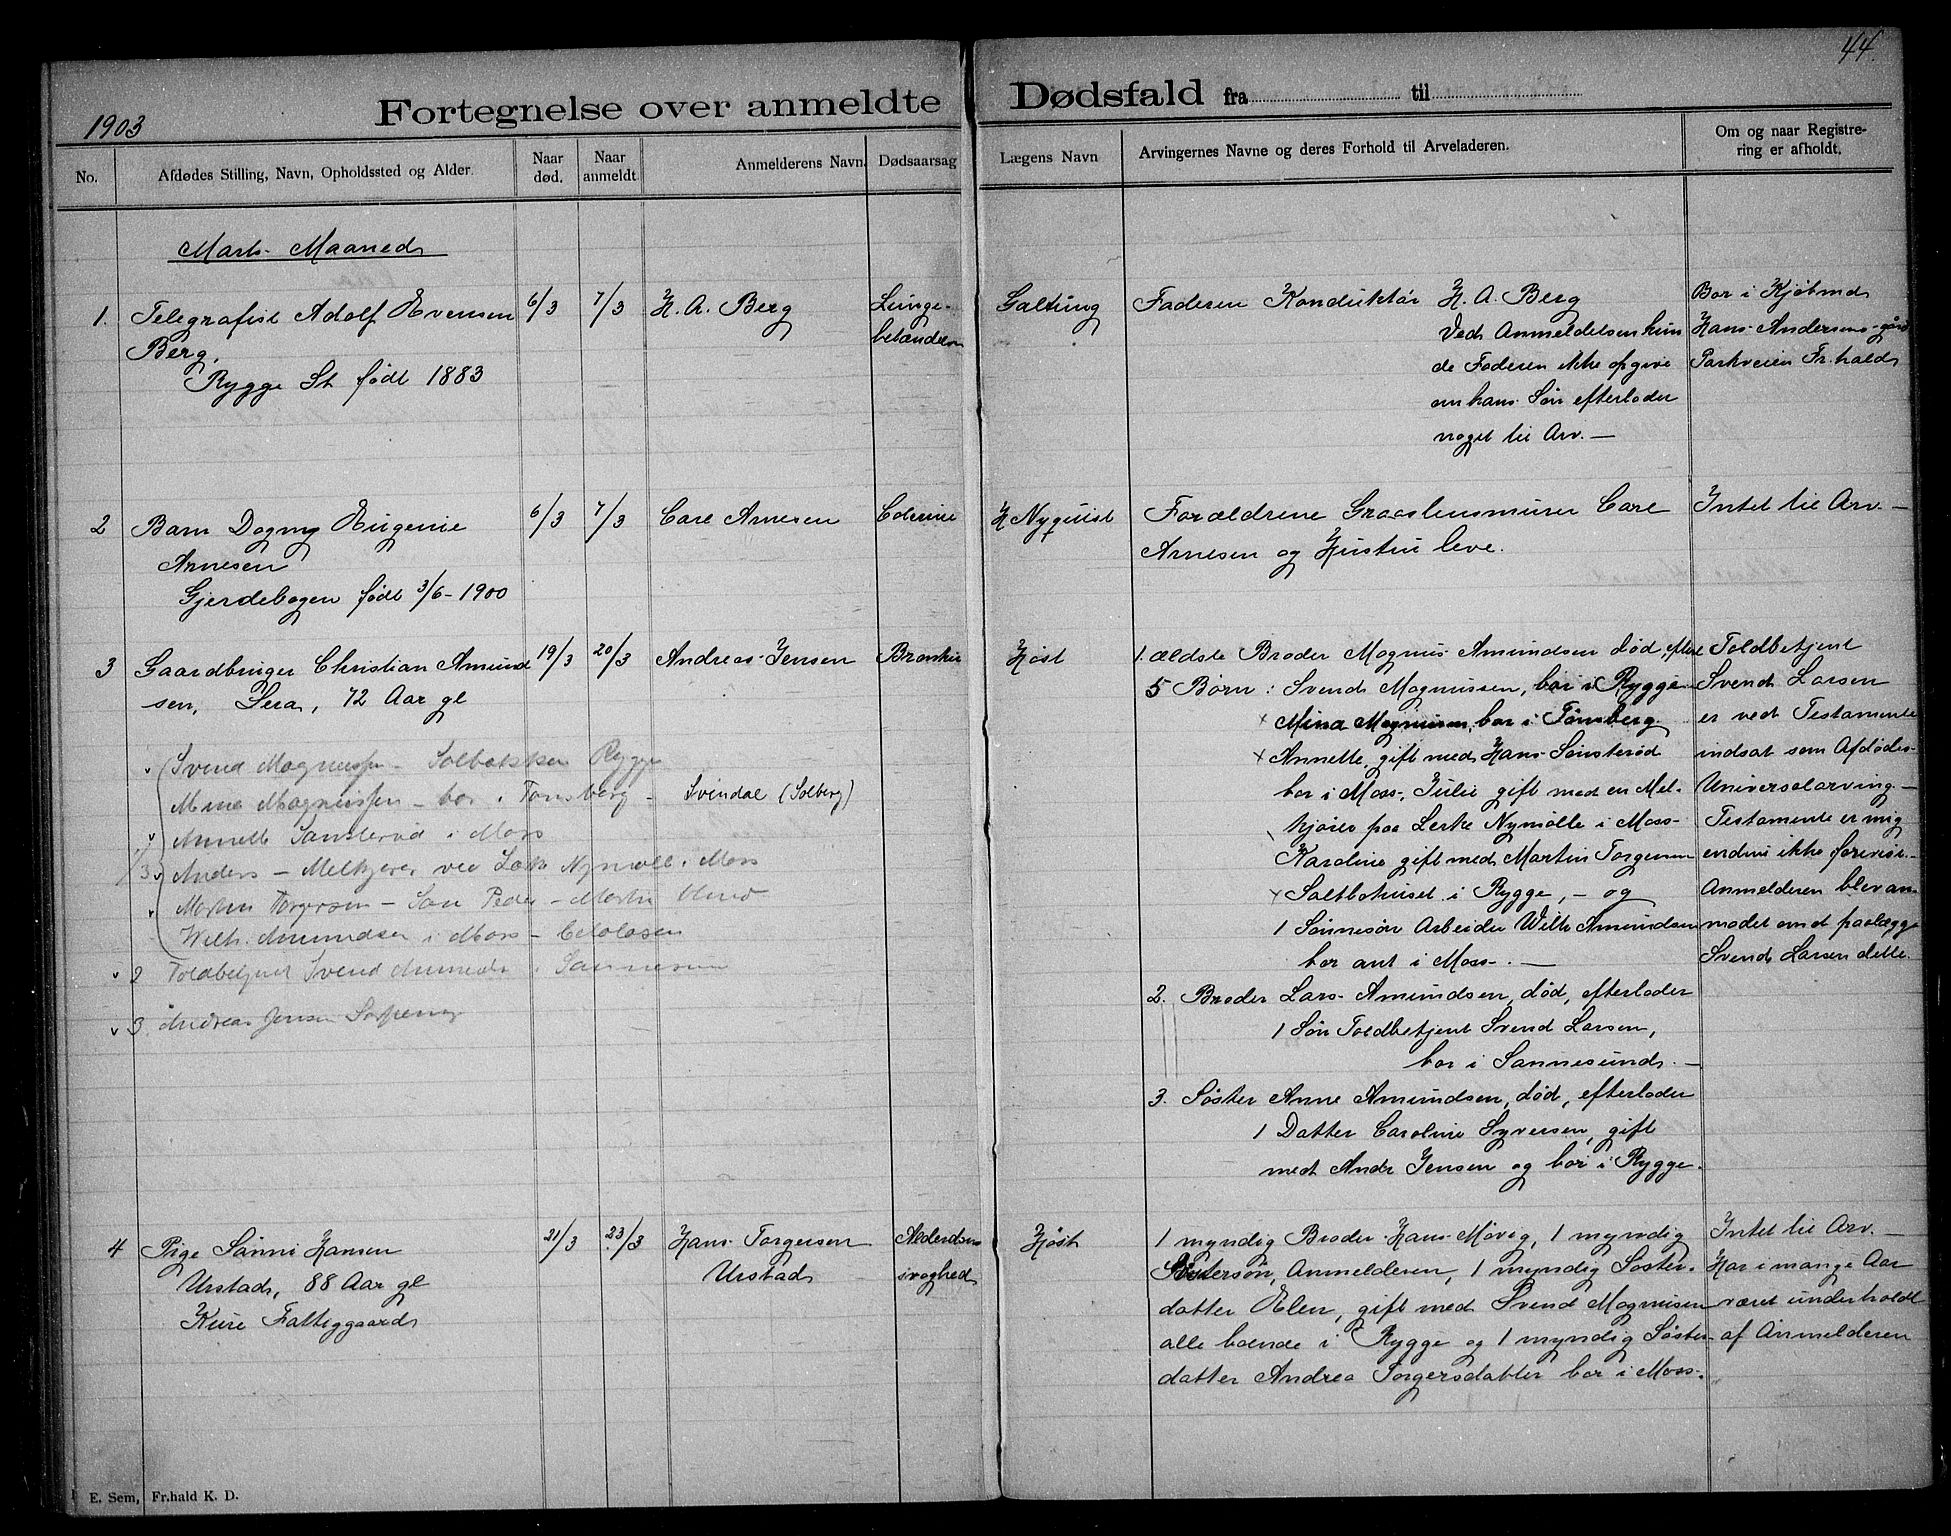 44.
1903
Fortegnelse over anmeldte Dødsfald fra til
No.
Afdødes Stilling, Navn, Opholdssted og Alder.
Naar død.
Naar anmeldt.
Anmelderens Navn.
Dødsaarsag
Lægens Navn
Arvingernes Navne og deres Forhold til Arveladeren.
Om og naar Registre-
ring er afholdt.
Marts Maaned
1.
Telegrafist Adolf Evensen
Berg,
Rygge St født 1883
6/3
7/3
H. A. Berg
Lunge-
betændelse
Galtung
Faderen Konduktør H. A. Berg
Ved Anmeldelsen kun
de Faderen ikke opgive
om hans Søn efterlader
noget til Arv. —
Bor i Kjøbmd
Hans Andersens gård
Parkveien Fr.hald
2
Barn Dagny Eugenie
Arnesen
Gjerdebogen født 3/6-1900
6/3
7/3
Carl Arnesen
Colerine
H Nyquist
Forældrene Graastensmurer Carl
Arnesen og Hustru leve.
Intet til Arv. —
3
Gaardbruger Christian Amund
sen, Sera, 72 Aar gl
19/3
20/3
Andreas Jensen
Høst
1. ældste Broder Magnus Amundsen død, efterl
5 Børn: Svend Magnussen, bor i Rygge
Mina Magnussen, bor i Tønsberg
Annette, gift med Hans Sønsterød
bor i Moss, Julie gift med en Mel-
kjører paa Nymølle i Moss
Karoline gift med Martin Torgersen
Saltbohuset i Rygge, — og
1 Sønnesøn Arbeider Wilh Amundsen
bor ant i Moss. —
2. Broder Lars Amundsen, død, efterlader
1 Søn Toldbetjent Svend Larsen,
bor i Sannesund. —
3. Søster Anne Amundsen, død, efterlader
1 Datter Caroline Syversen, gift
med Andr Jensen og bor i Rygge.
Toldbetjent
Svend Larsen
er ved Testamente
indsat som Afdødes
Universalarving. —
Testamente er mig
endnu ikke forevist.
Anmelderen blev an-
modet om at paalægge
Svend Larsen dette.
Svend Magnussen — Solbakken Rygge
Mina Magnussen — bor i Tønsberg — Svindal (Solberg)
Annette Sønsterød i Moss
Anders — Melkjører ved Nymølle i Moss
Martin Torgersen — Peder — Martin
Wilh. Amundsen i Moss —
2 Toldbetjent Svend i Sannesund
3. Andreas Jensen
4
Pige Sønni Hansen
Urstad, 88 Aar gl
Kure Fattiggaard
21/3
23/3
Hans Torgersen
Urstad
Alderdoms
svaghed
Høst
1 myndig Broder Hans Møvig, 1 myndig
Søstersøn, Anmelderen, 1 myndig Søster-
datter Elen, gift med Svend Magnussen
alle boende i Rygge og 1 myndig Søster-
datter Andrea Torgersdatter bor i Moss.
Intet til Arv. —
Har i mange Aar
været underholdt
af Anmelderen
E. Sem, Fr.hald K. D.